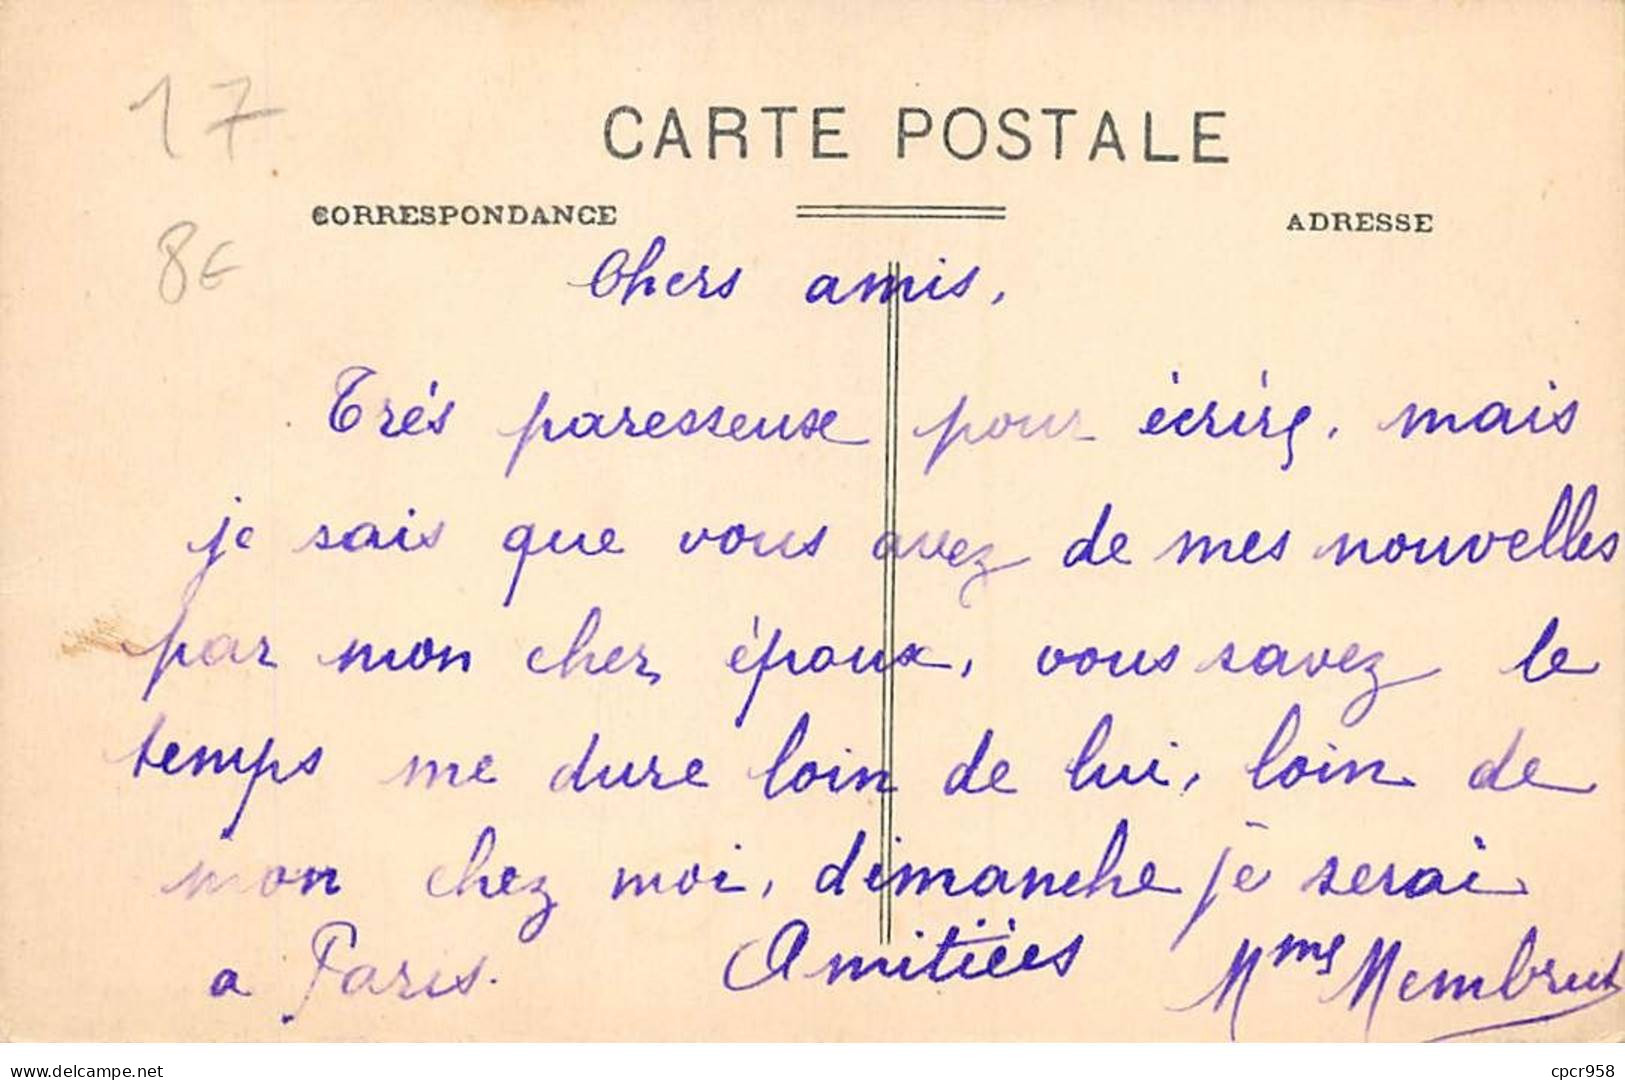 17
CARTE POSTALE
CORRESPONDANCE
ADRESSE
8€
Chers amis,
Trés paresseuse pour écrire, mais
je sais que vous avez de mes nouvelles
par mon cher époux, vous savez le
temps me dure loin de lui, loin de
mon chez moi, dimanche je serai
a Paris. Amitiées Mme Membrut
delcampe.net
cpcr958